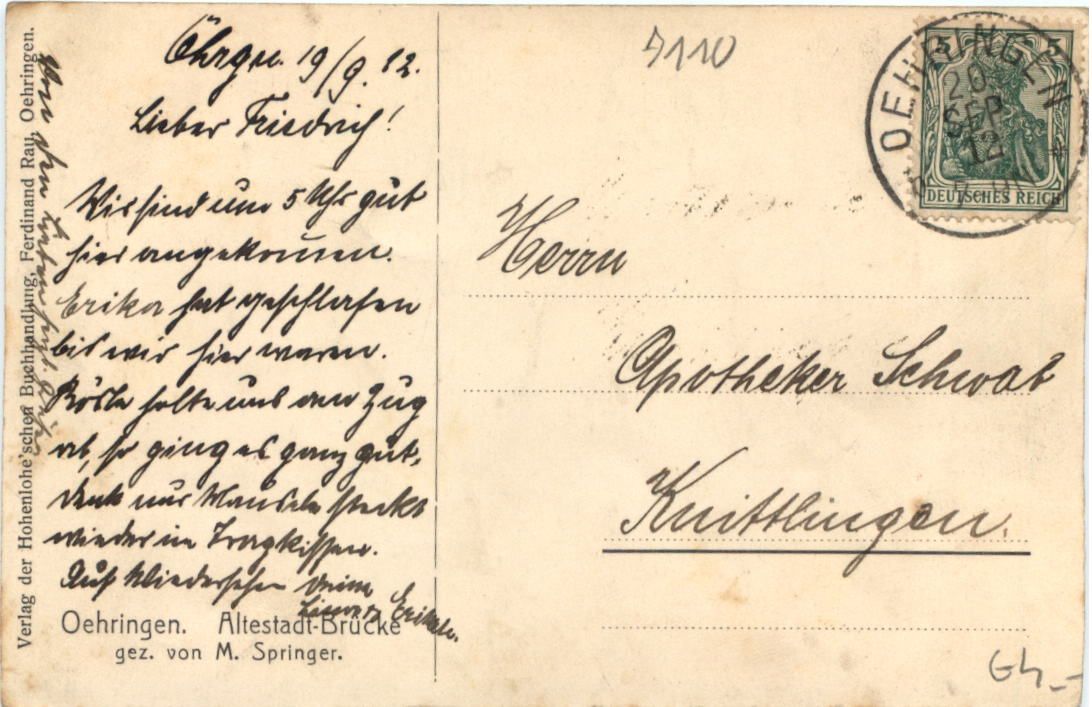 Öhrgn. 19/9. 12.
Lieber Friedrich!
Wir sind um 5 Uhr gut
hier angekommen.
Erika hat geschlafen
bis wir hier waren.
Rösle holte uns am Zug
ab, so ging es ganz gut.
denk nur Mausele steckt
wieder im Tragkissen.
Auf Wiedersehen deine
Erikele.
Von den
Verlag der Hohenlohe'schen Buchhandlung, Ferdinand Rau, Oehringen.
Oehringen. Altestadt-Brücke
gez. von M. Springer.
7110
OEHRINGEN
20
SEP
12
5 5
DEUTSCHES REICH
Herrn
Apotheker Schwab
Knittlingen.